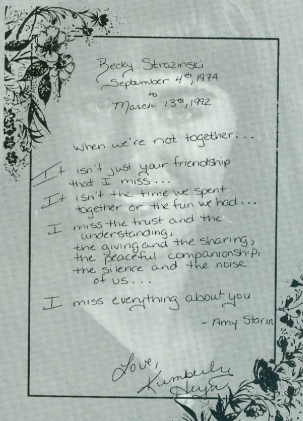 Becky Strazinski
September 4th, 1974
to
March 13th, 1992
When we're not together...
It isn't just your friendship
that I miss...
It isn't the time we spent
together or the fun we had...
I miss the trust and the
understanding,
the giving and the sharing,
the peaceful companionship,
the silence and the noise
of us...
I miss everything about you
- Amy Starin
Love,